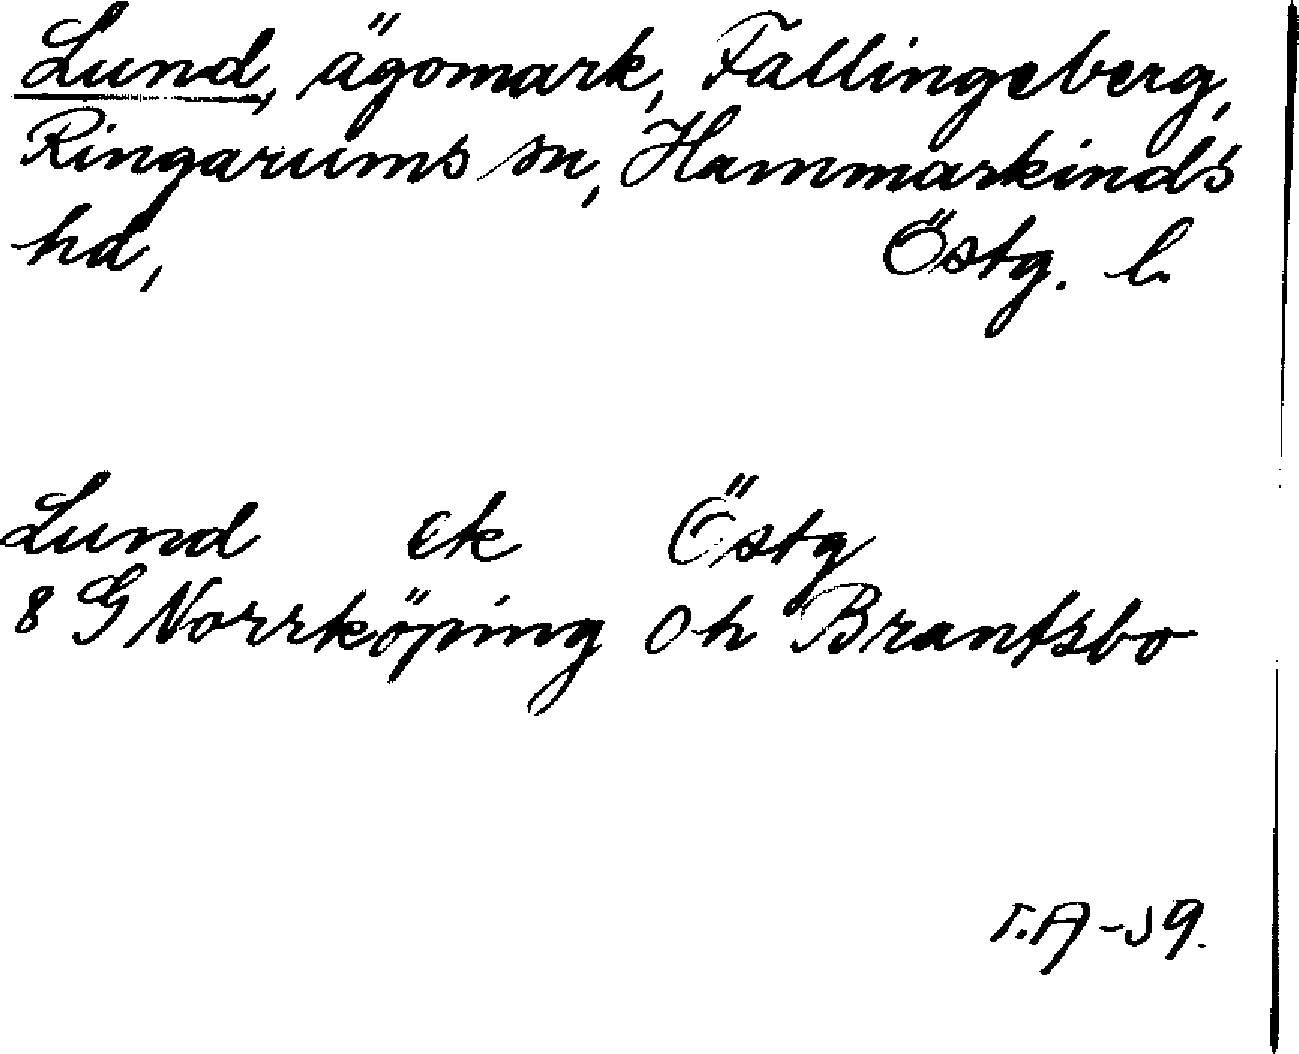 Lund, ägomark, Fallingeberg,
Ringarums sn, Hammarkinds
hd, Östg. l.
Lund ek Östg
8 G Norrköping Oh Brantsbo